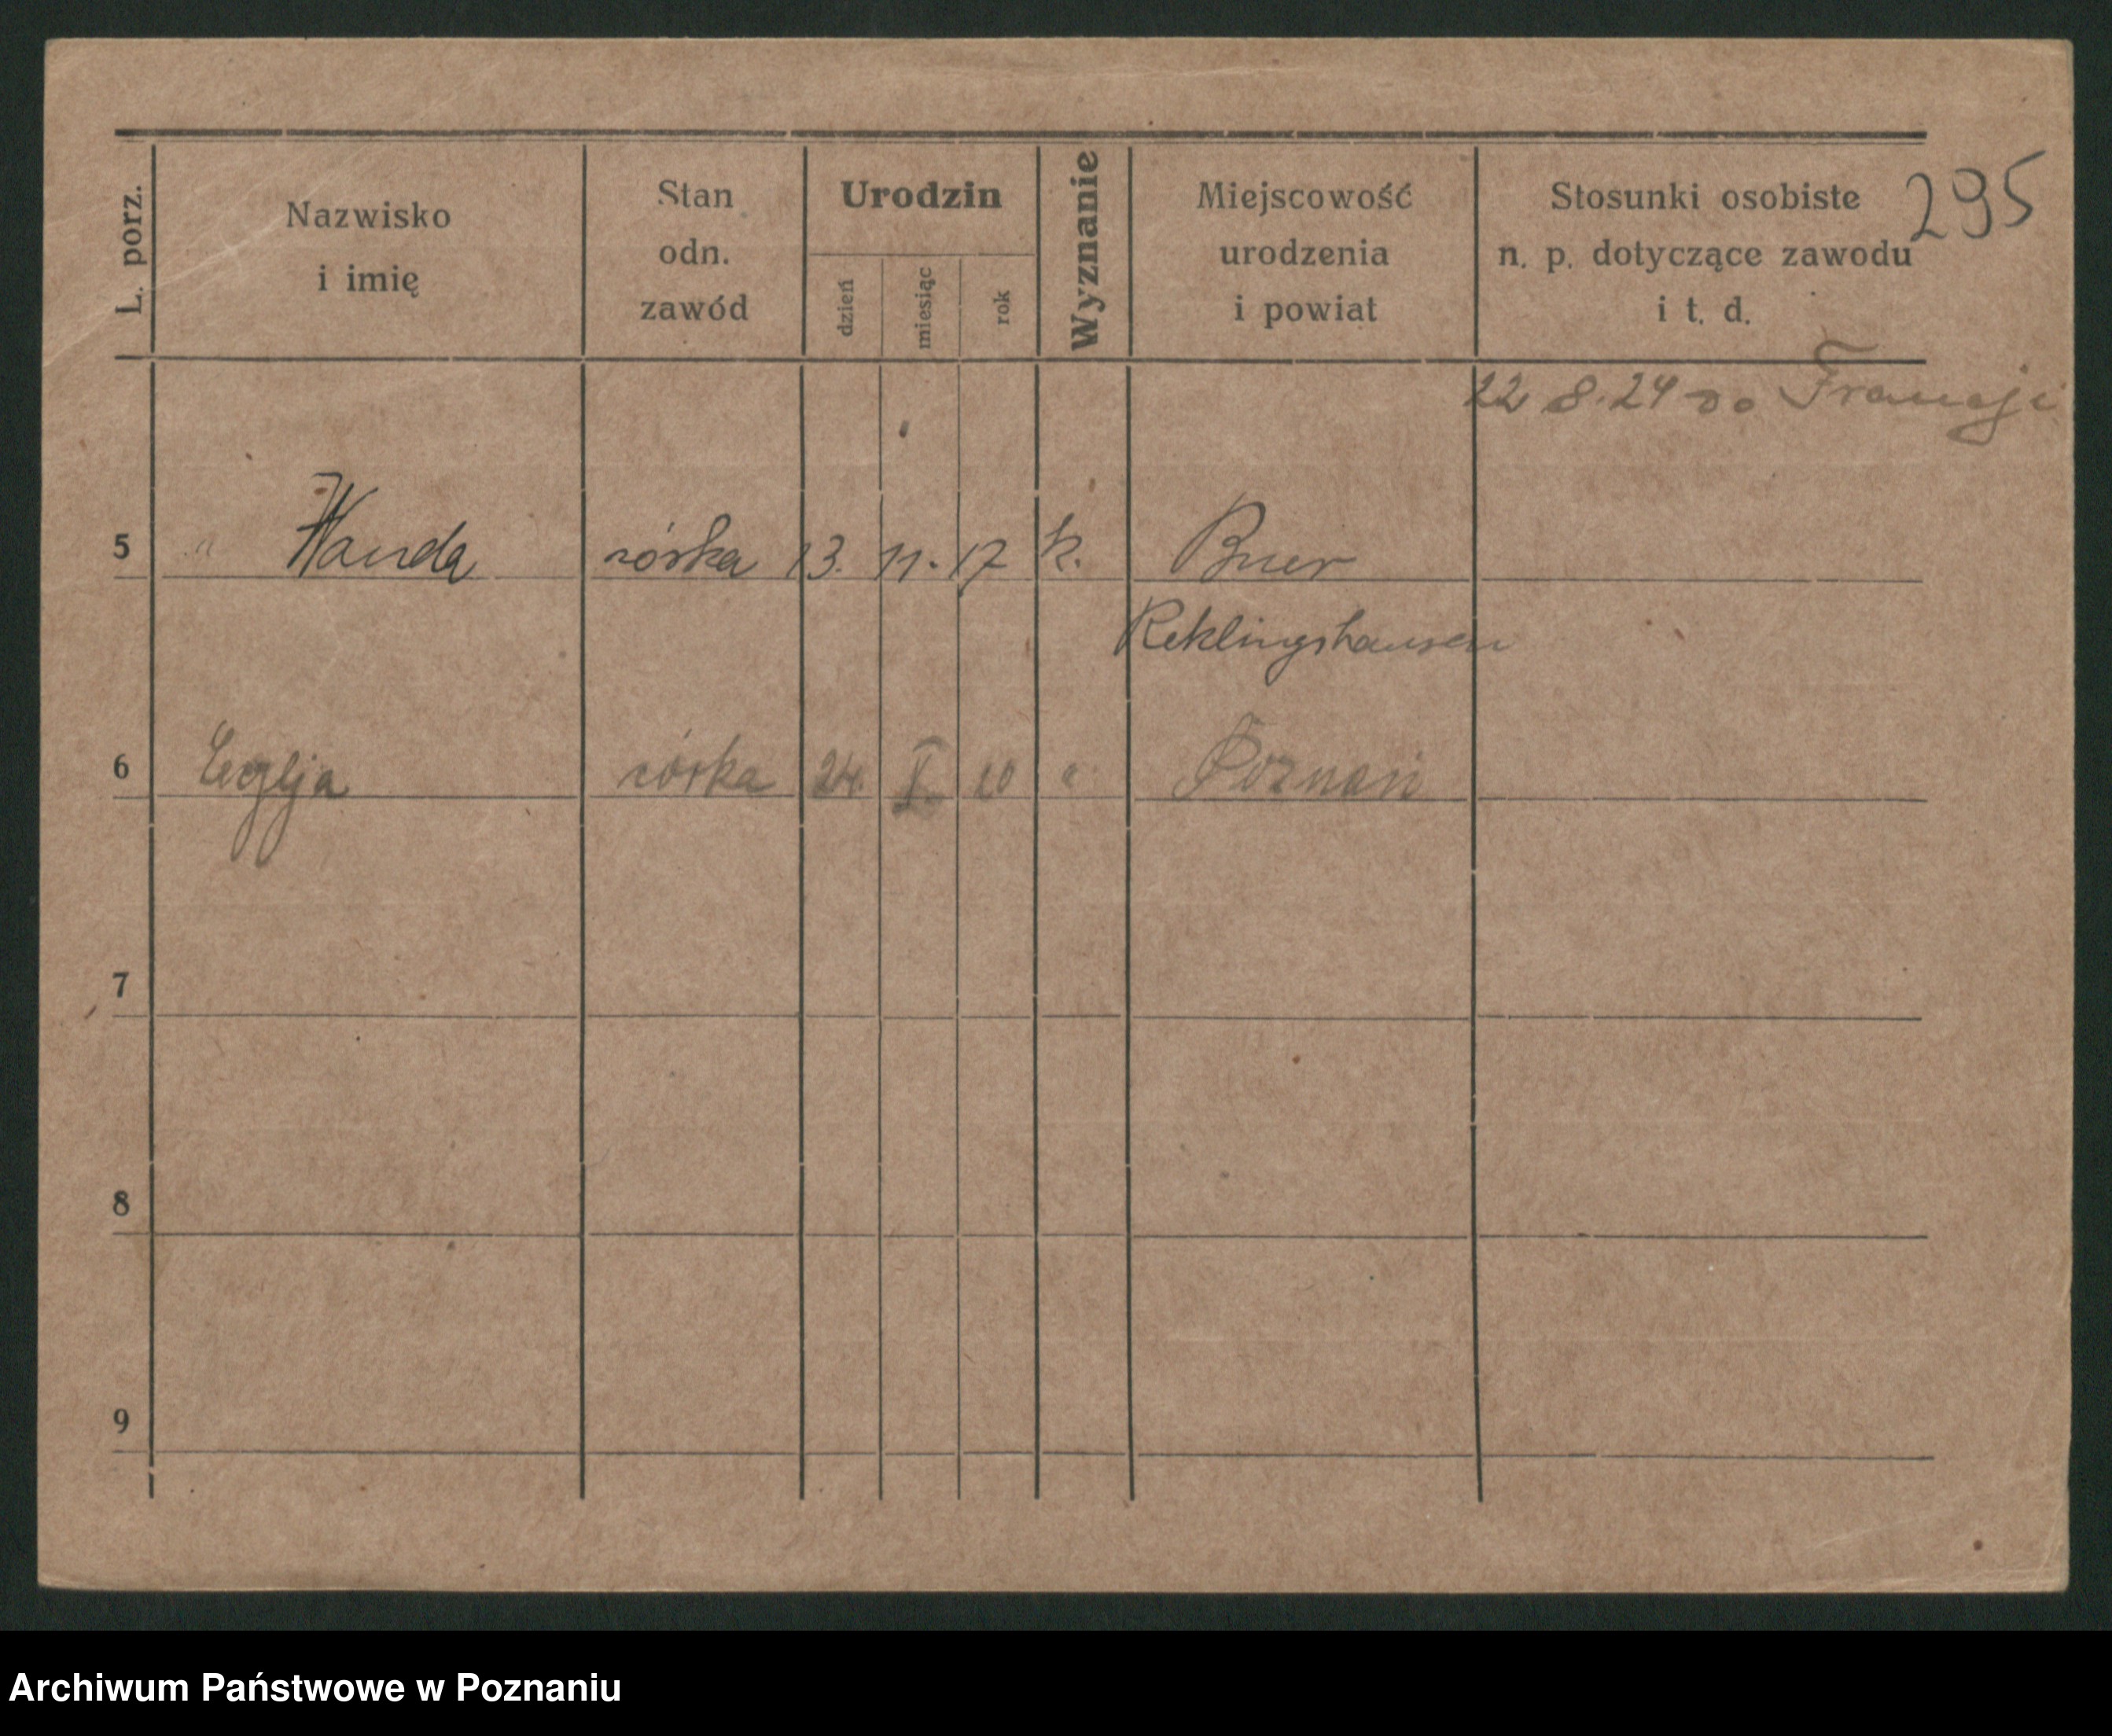 295
L. porz.
Nazwisko
i imię
Stan
odn.
zawód
Urodzin
dzień
miesiąc
rok
Wyznanie
Miejscowość
urodzenia
i powiat
Stosunki osobiste
n. p. dotyczące zawodu
i t. d.
22 8.24 do Francji
5 " Wanda córka 13. 11. 17 k. Buer
Reklingshausen
6 córka 24. X. " Poznań
7
8
9
Archiwum Państwowe w Poznaniu